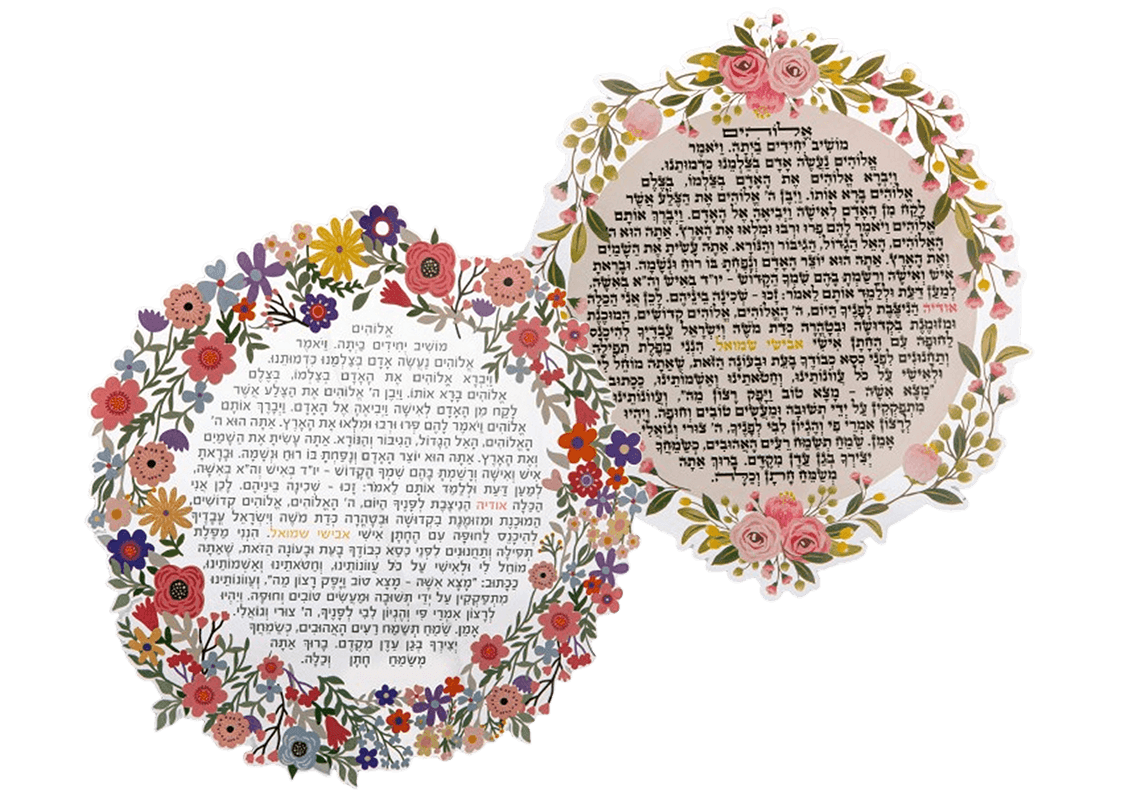 אֱלוֹהִים
מוֹשִׁיב יְחִידִים בַּיְתָה. וַיֹּאמֶר
אֱלוֹהִים נַעֲשֶׂה אָדָם בְּצַלְמֵנוּ כִּדְמוּתֵנוּ.
וַיִּבְרָא אֱלוֹהִים אֶת הָאָדָם בְּצַלְמוֹ, בְּצֶלֶם
אֱלוֹהִים בָּרָא אוֹתוֹ. וַיִּבֶן ה' אֱלוֹהִים אֶת הַצֵּלָע אֲשֶׁר
לָקַח מִן הָאָדָם לְאִישָּׁה וַיְבִיאֶהָ אֶל הָאָדָם. וַיְבָרֶךְ אוֹתָם
אֱלוֹהִים וַיֹּאמֶר לָהֶם פְּרוּ וּרְבוּ וּמִלְאוּ אֶת הָאָרֶץ. אַתָּה הוּא ה'
הָאֱלוֹהִים, הָאֵל הַגָּדוֹל, הַגִּיבּוֹר וְהַנּוֹרָא. אַתָּה עָשִׂיתָ אֶת הַשָּׁמַיִם
וְאֶת הָאָרֶץ. אַתָּה הוּא יוֹצֵר הָאָדָם וְנָפַחְתָּ בּוֹ רוּחַ וּנְשָׁמָה. וּבָרָאתָ
אִישׁ וְאִישָׁה וְרָשַׁמְתָּ בָּהֶם שִׁמְךָ הַקָּדוֹשׁ - יוּ"ד בָּאִישׁ וְהֵ"א בָּאִשָּׁה,
לְמַעַן דַּעַת וּלְלַמֵּד אוֹתָם לֵאמֹר: זָכוּ - שְׁכִינָה בֵּינֵיהֶם. לָכֵן אֲנִי
הַכַּלָּה אודיה הַנִּיצֶּבֶת לְפָנֶיךָ הַיּוֹם, ה' הָאֱלוֹהִים, אֱלוֹהִים קְדוֹשִׁים,
הַמּוּכֶנֶת וּמְזוּמֶּנֶת בִּקְדוּשָּׁה וּבְטָהֳרָה כְּדַת מֹשֶׁה וְיִשְׂרָאֵל עֲבָדֶיךָ
לְהִיכָּנֵס לַחוּפָּה עִם הֶחָתָן אִישִׁי אבישי שמואל. הִנְנִי מַפֶּלֶת
תְּפִילָּה וְתַחֲנוּנִים לִפְנֵי כִּסֵּא כְבוֹדְךָ בָּעֵת וּבָעוֹנָה הַזֹּאת, שֶׁאַתָּה
מוֹחֵל לִי וּלְאִישִׁי עַל כֹּל עֲווֹנוֹתֵינוּ, וְחַטֹּאתֵינוּ, וְאַשְׁמוֹתֵינוּ,
כַּכָּתוּב: "מָצָא אִשָּׁה - מָצָא טוֹב וַיָּפֶק רָצוֹן מֵה'", וַעֲווֹנוֹתֵינוּ
מִתְפַּקְּקִין עַל יְדֵי תְּשׁוּבָה וּמַעֲשִׂים טוֹבִים וְחוּפָּה. וְיִהְיוּ
לְרָצוֹן אִמְרֵי פִי וְהֶגְיוֹן לִבִּי לְפָנֶיךָ, ה' צוּרִי וְגוֹאֲלִי.
אָמֵן. שַׂמֵּחַ תְּשַׂמַּח רֵעִים הָאֲהוּבִים, כְּשַׂמֵּחֲךָ
יְצִירְךָ בְּגַן עֵדֶן מִקֶּדֶם. בָּרוּךְ אַתָּה
מְשַׂמֵּחַ חָתָן וְכַלָּה.
אֱלוֹהִים
מוֹשִׁיב יְחִידִים בַּיְתָה. וַיֹּאמֶר
אֱלוֹהִים נַעֲשֶׂה אָדָם בְּצַלְמֵנוּ כִּדְמוּתֵנוּ.
וַיִּבְרָא אֱלוֹהִים אֶת הָאָדָם בְּצַלְמוֹ, בְּצֶלֶם
אֱלוֹהִים בָּרָא אוֹתוֹ. וַיִּבֶן ה' אֱלוֹהִים אֶת הַצֵּלָע אֲשֶׁר
לָקַח מִן הָאָדָם לְאִישָּׁה וַיְבִיאֶהָ אֶל הָאָדָם. וַיְבָרֶךְ אוֹתָם
אֱלוֹהִים וַיֹּאמֶר לָהֶם פְּרוּ וּרְבוּ וּמִלְאוּ אֶת הָאָרֶץ. אַתָּה הוּא ה'
הָאֱלוֹהִים, הָאֵל הַגָּדוֹל, הַגִּיבּוֹר וְהַנּוֹרָא. אַתָּה עָשִׂיתָ אֶת הַשָּׁמַיִם
וְאֶת הָאָרֶץ. אַתָּה הוּא יוֹצֵר הָאָדָם וְנָפַחְתָּ בּוֹ רוּחַ וּנְשָׁמָה. וּבָרָאתָ
אִישׁ וְאִישָׁה וְרָשַׁמְתָּ בָּהֶם שִׁמְךָ הַקָּדוֹשׁ - יוּ"ד בָּאִישׁ וְהֵ"א בָּאִשָּׁה,
לְמַעַן דַּעַת וּלְלַמֵּד אוֹתָם לֵאמֹר: זָכוּ - שְׁכִינָה בֵּינֵיהֶם. לָכֵן אֲנִי הַכַּלָּה
אודיה הַנִּיצֶּבֶת לְפָנֶיךָ הַיּוֹם, ה' הָאֱלוֹהִים, אֱלוֹהִים קְדוֹשִׁים, הַמּוּכֶנֶת
וּמְזוּמֶּנֶת בִּקְדוּשָּׁה וּבְטָהֳרָה כְּדַת מֹשֶׁה וְיִשְׂרָאֵל עֲבָדֶיךָ לְהִיכָּנֵס
לַחוּפָּה עִם הֶחָתָן אִישִׁי אבישי שמואל. הִנְנִי מַפֶּלֶת תְּפִילָּה
וְתַחֲנוּנִים לִפְנֵי כִּסֵּא כְבוֹדְךָ בָּעֵת וּבָעוֹנָה הַזֹּאת, שֶׁאַתָּה מוֹחֵל לִי
וּלְאִישִׁי עַל כֹּל עֲווֹנוֹתֵינוּ, וְחַטֹּאתֵינוּ, וְאַשְׁמוֹתֵינוּ, כַּכָּתוּב:
מָצָא אִשָּׁה - מָצָא טוֹב וַיָּפֶק רָצוֹן מֵה'", וַעֲווֹנוֹתֵינוּ
מִתְפַּקְּקִין עַל יְדֵי תְּשׁוּבָה וּמַעֲשִׂים טוֹבִים וְחוּפָּה. וְיִהְיוּ
לְרָצוֹן אִמְרֵי פִי וְהֶגְיוֹן לִבִּי לְפָנֶיךָ, ה' צוּרִי וְגוֹאֲלִי
אָמֵן. שַׂמֵּחַ תְּשַׂמַּח רֵעִים הָאֲהוּבִים, כְּשַׂמֵּחֲךָ
יְצִירְךָ בְּגַן עֵדֶן מִקֶּדֶם. בָּרוּךְ אַתָּה
מְשַׂמֵּחַ חָתָן וְכַלָּה.